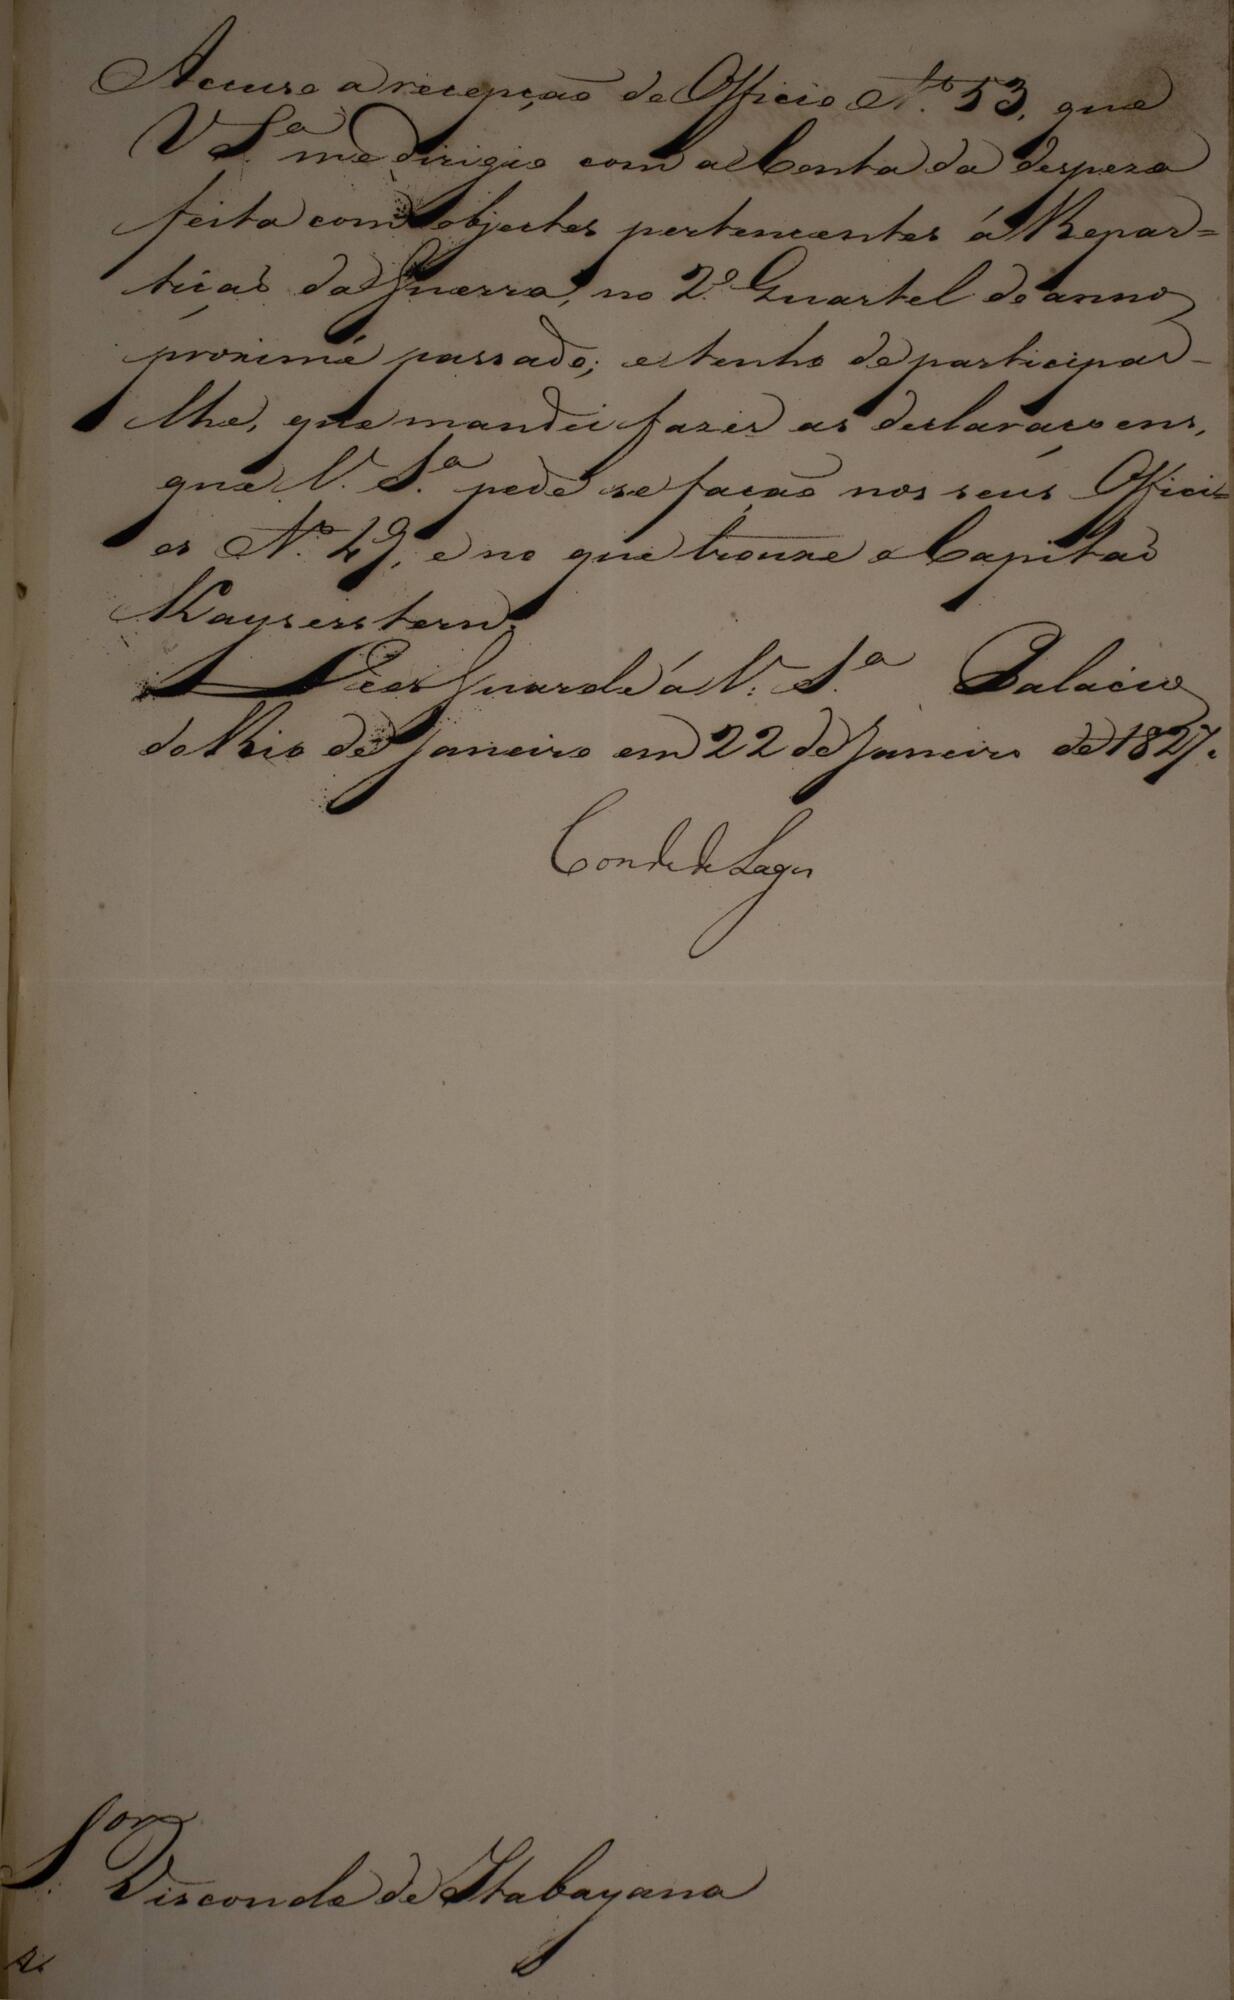 Accuso a recepção do Officio N.º 53, que
V S.ª me dirigio com a Conta da despeza
feita com objectos pertencentes á Repar=
tição da Guerra, no 2.º Quartel do anno
proximo passado; e tenho de participar-
lhe, que mandei fazer as declaraçoens,
que V. S.ª pede se fação nos seus Offici=
os N.º 49, e no que trouxe o Capitaõ
Kayserstern.
Deos Guarde á V. S.ª Palacio
do Rio de Janeiro em 22 de Janeiro de 1827.
Conde de Lages
S.or Visconde de Itabayana